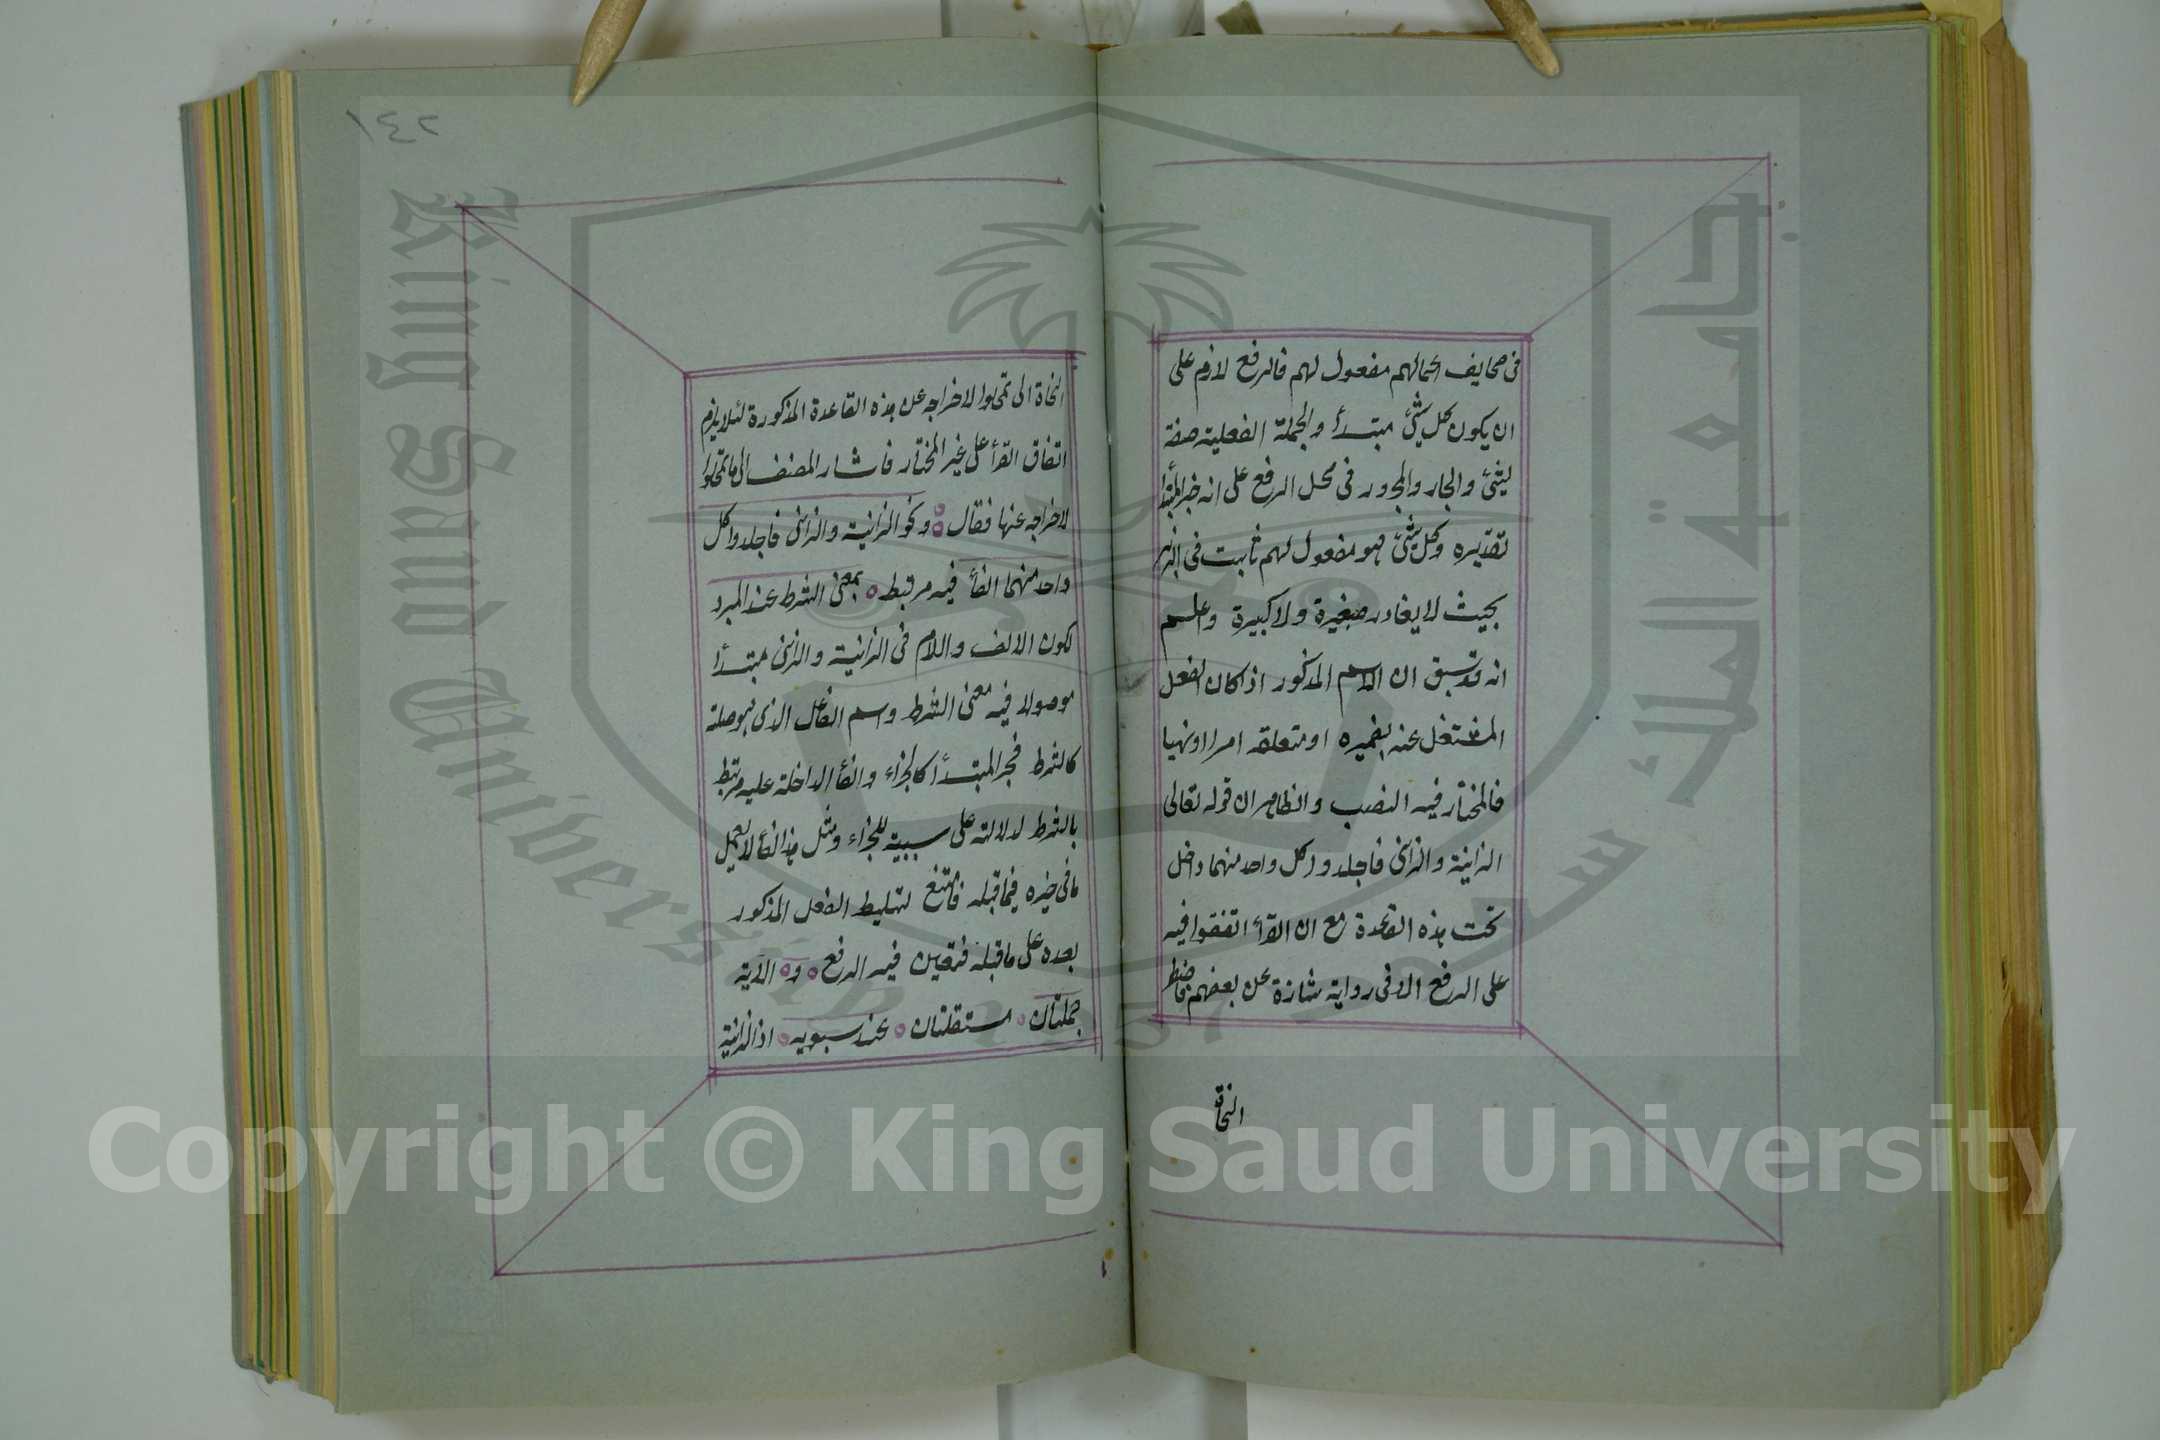 فى صحايف اعمالهم مفعول لهم فالرفع لازم على
ان يكون كل شئ مبتدأ والجملة الفعلية صفة
لشئ والجار والمجرور فى محل الرفع على انه خبر المبتدأ
تقديره وكل شئ هو مفعول لهم ثابت فى الزبر
بحيث لا يغادر صغيرة ولا كبيرة واعلم
انه قد سبق ان الاسم المذكور اذا كان الفعل
المشتغل عنه بضميره او متعلقه امرا او نهيا
فالمختار فيه النصب والظاهر ان قوله تعالى
الزانية والزانى فاجلدوا كل واحد منهما داخل
تحت هذه القاعدة مع ان القرأ اتفقوا فيه
على الرفع الا فى رواية شاذة عن بعضهم فاضطر
النحاة
النحاة الى تمحلوا لاخراجه عن هذه القاعدة المذكورة لئلا يلزم
اتفاق القرأ على غير المختار فاشار المصنف الى ما تمحلوا
لاخراجه عنها فقال ونحو الزانية والزانى فاجلدوا كل
واحد منهما الفأ فيه مرتبط بمعنى الشرط عند المبرد
لكون الالف واللام فى الزانية والزانى مبتدأ
موصولا فيه معنى الشرط واسم الفاعل الذى هو صلته
كالشرط فخبر المبتدأ كالجزاء والفأ الداخلة عليه مرتبط
بالشرط لدلالته على سببية للجزاء ومثل هذا الفأ لا يعمل
ما فى حيزه فيما قبله فامتنع تسليط الفعل المذكور
بعده على ما قبله فتعين فيه الرفع و الآية
جملتان مستقلتان عند سيبويه اذ الزانية
١٤٢
King Saud University
جامعة الملك سعود
1957
Copyright © King Saud University